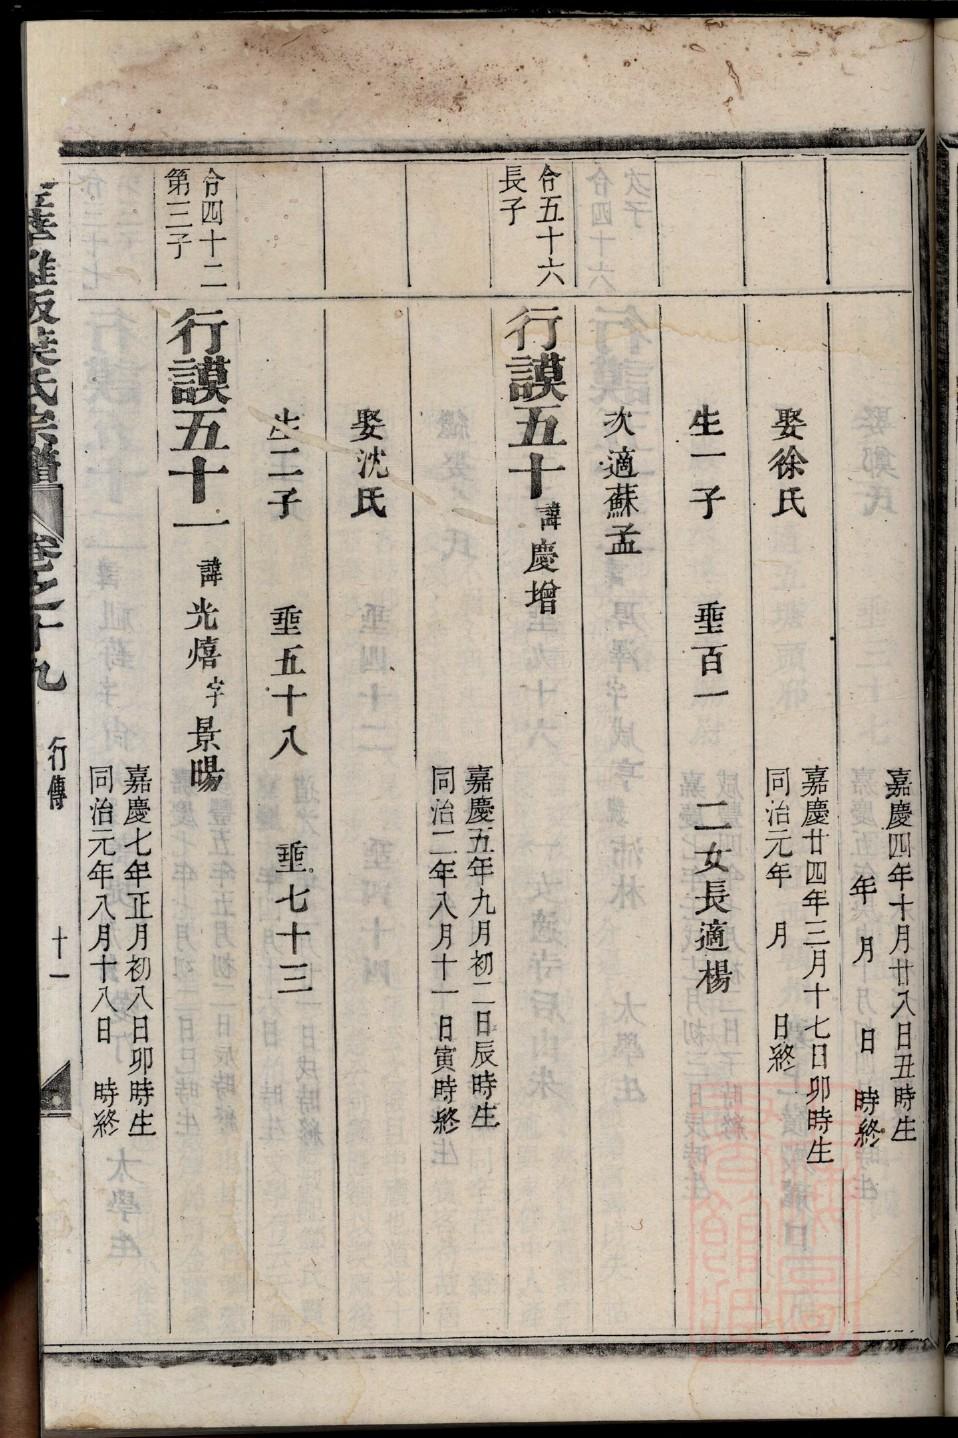 嘉慶四年十月廿八日丑時生
年　月　日　時終
娶徐氏
嘉慶廿四年三月十七日卯時生
同治元年　月　日終
生一子　埀百一　二女長適楊
次適蘇孟
合五十六
長子
行謨五十 諱慶增
嘉慶五年九月初二日辰時生
同治二年八月十一日寅時終
娶沈氏
生二子　埀五十八　埀七十三
合四十二
第三子
行謨五十一 諱光熺字景暘
嘉慶七年正月初八日卯時生
同治元年八月十八日　時終
葉氏宗譜 卷之十九 行傳 十一